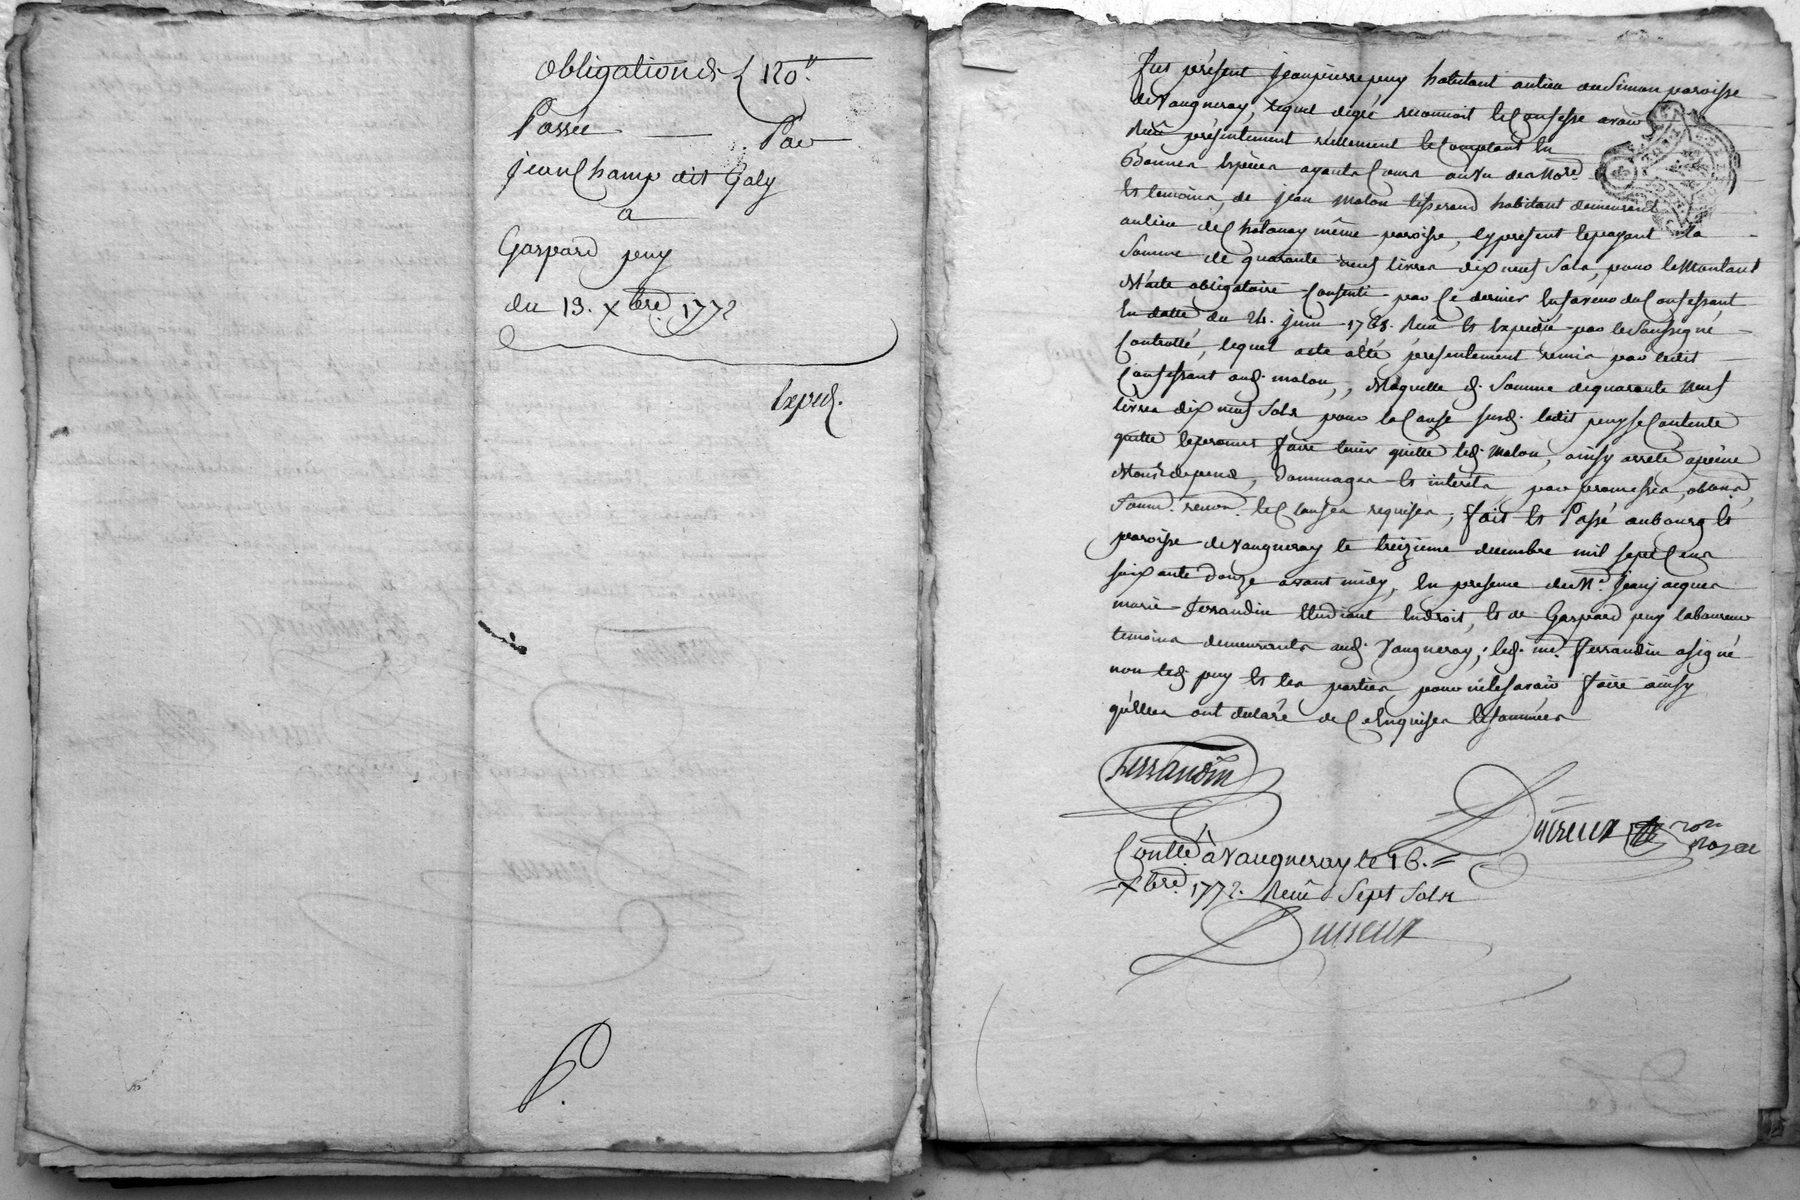 obligation de 120ᵗᵗ
Passée — Par
jean Champ dit Galy
a
Gaspard puy
du 13. xbre 1772
Exped.
fut présent jeanpierre puy habitant au lieu du Simon paroisse
de Vaugneray, lequel de gré reconnoit & Confesse avoir
Reçu présentement réellement & Comptant En
Bonnes Espèces ayants Cours au Vu des No.re
Et temoins, de jean Malon tisserand habitant demeurant
au lieu de Chatanay même paroisse, Cy present & payant la
Somme de quarante neuf livres dix neuf Sols, pour le Montant
d'acte obligatoire Consenti par Ce dernier En faveur du Confessant
En datte du 24. juin 1768. Reçu Et Expedié par le Soussigné
Controllé, lequel acte a été présentement remis par ledit
Confessant aud. malon,, de laquelle d. Somme de quarante Neuf
livres dix neuf Sols pour la Cause susd. ledit puy se Contente
quitte & promet faire tenir quitte led. Malon, ainsy arreté a peine
de tous depens, Dommages Et interêts, par promesses, obon,
Soum. renon. & Clauses requises; fait Et Passé au bourg Et
paroisse de Vaugneray le treizieme decembre mil sept Cens
soixante Douze avant midy, En presence de Me. jeanjacques
marie ferrandin Etudiant En droit, Et de Gaspard puy laboureur
temoins demeurants aud. Vaugneray; led. me. ferrandin a signé
non led. puy Et les parties, pour ne le savoir faire ainsy
qu'elles ont declaré de Ce Enquises & sommées
ferrandin
Durieux No.re Royal
Contlé à Vaugneray le 16.
xbre 1772. Reçu Sept Sols
Durieux